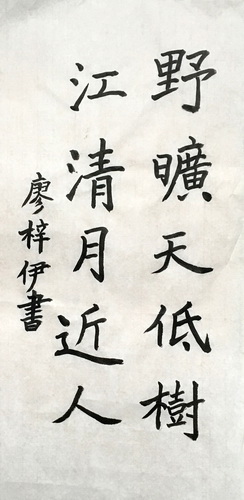 野曠天低樹
江清月近人
廖梓伊書